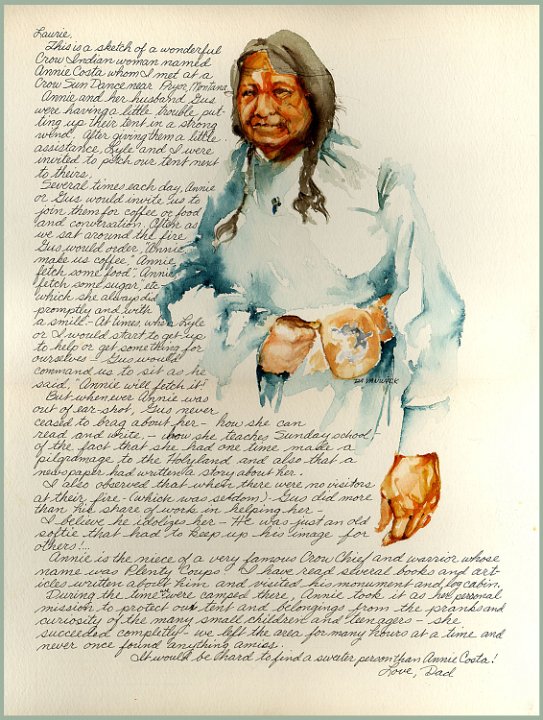 Laurie,
This is a sketch of a wonderful
Crow Indian woman named
Annie Costa whom I met at a
Crow Sun Dance near Pryor, Montana
Annie and her husband Gus
were having a little trouble put-
ting up their tent in a strong
wind. After giving them a little
assistance, Lyle and I were
invited to pitch our tent next
to theirs.
Several times each day, Annie
or Gus would invite us to
join them for coffee or food
and conversation. Often as
we sat around the fire
Gus would order, "Annie
make us coffee," "Annie,
fetch some food", "Annie
fetch some sugar," etc -
which she always did
promptly and with
a smile. - At times when Lyle
or I would start to get up
to help or get something for
ourselves - Gus would
command us to sit as he
said, "Annie will fetch it!"
But whenever Annie was
out of ear-shot, Gus never
ceased to brag about her - how she can
read and write, - how she teaches Sunday school -
of the fact that she had one time made a
pilgrimage to the Holyland and also that a
newspaper had written a story about her.
I also observed that when there were no visitors
at their fire - (which was seldom) - Gus did more
than his share of work in helping her -
I believe he idolizes her - He was just an old
softie that had to keep up his image for
others!...
Annie is the niece of a very famous Crow Chief and warrior whose
name was Plenty Coups - I have read several books and art-
icles written about him and visited his monument and log cabin.
During the time we were camped there, Annie took it as her personal
mission to protect our tent and belongings from the pranks and
curiosity of the many small children and teenagers - she
succeeded completly - we left the area for many hours at a time and
never once found anything amiss.
It would be hard to find a sweeter person than Annie Costa!
Love, Dad